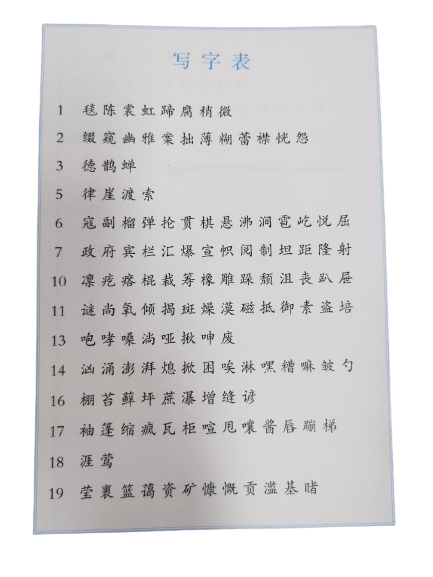 写字表
1 毯 陈 裳 虹 蹄 腐 稍 微
2 缀 窥 幽 雅 案 拙 薄 糊 蕾 襟 恍 怨
3 德 鹊 蝉
5 律 崖 渡 索
6 寇 副 榴 弹 抡 贯 棋 悬 沸 涧 雹 屹 悦 屈
7 政 府 宾 栏 汇 爆 宣 帜 阅 制 坦 距 隆 射
10 凛 疙 瘩 棍 裁 筹 橡 雕 跺 颓 沮 丧 趴 屉
11 谜 尚 氧 倾 揭 斑 燥 漠 磁 抵 御 素 盗 培
13 咆 哮 嗓 淌 哑 揪 呻 废
14 汹 涌 澎 湃 熄 掀 困 唉 淋 嘿 糟 嘛 皱 勺
16 棚 苔 藓 坪 蔗 瀑 增 缝 谚
17 袖 篷 缩 疯 瓦 柜 喧 甩 嚷 酱 唇 蹦 梯
18 涯 莺
19 莹 裹 篮 蔼 资 矿 慷 慨 贡 滥 基 睹